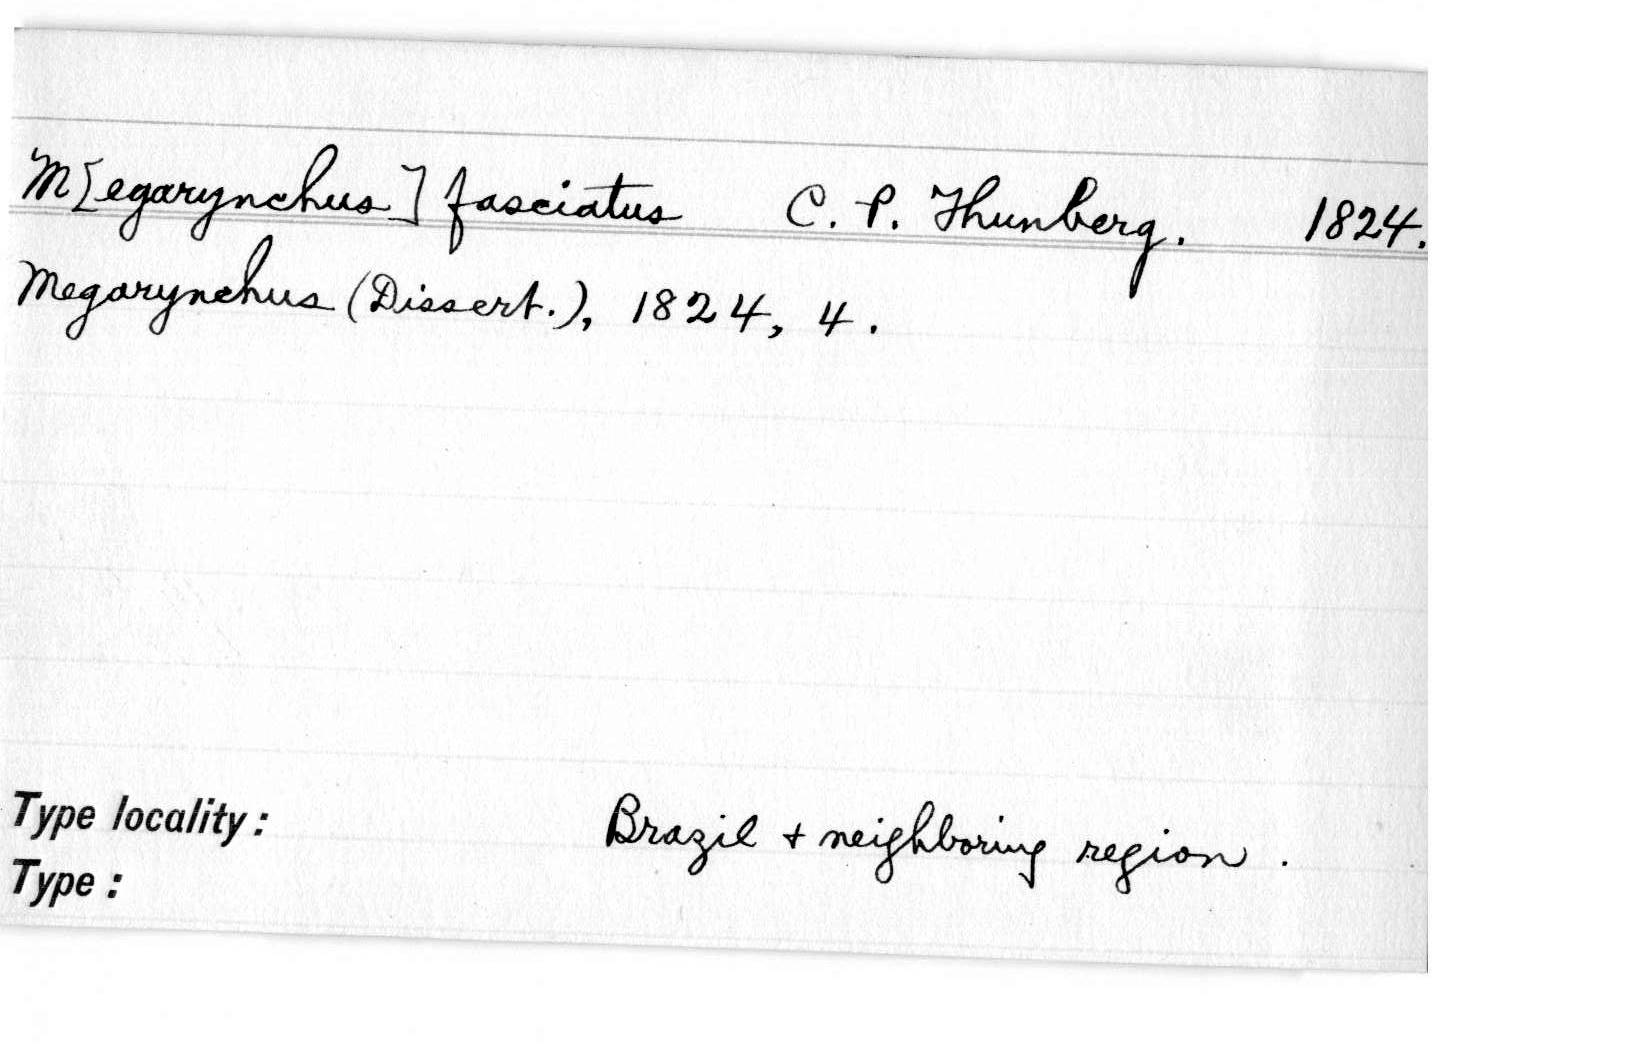 M[egarynchus] fasciatus C. P. Thunberg. 1824.
Megarynchus (Dissert.), 1824, 4.
Type locality: Brazil + neighboring region.
Type: